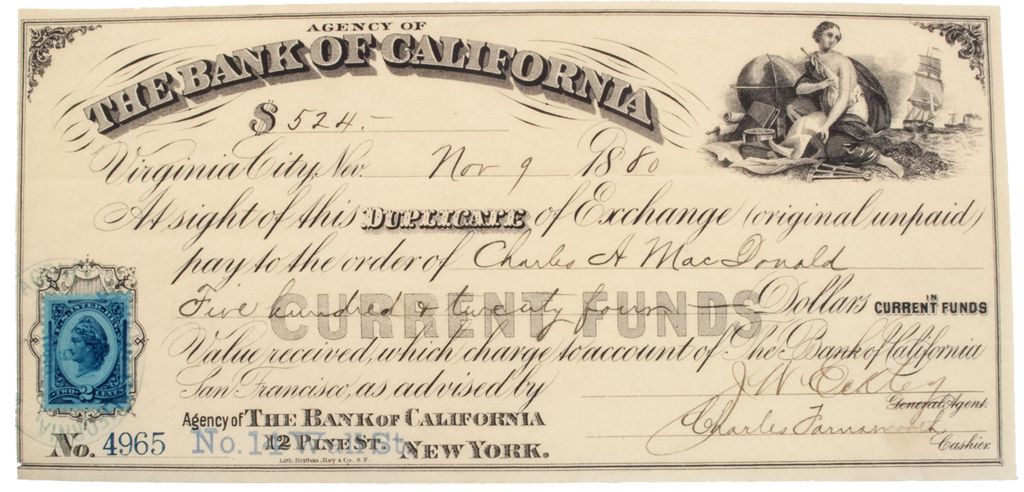 AGENCY OF
THE BANK OF CALIFORNIA
$ 524.-
Virginia City, Nev. Nov 9 1880
At sight of this DUPLICATE of Exchange (original unpaid)
pay to the order of Charles A MacDonald
Five hundred & twenty four Dollars IN CURRENT FUNDS
CURRENT FUNDS
Value received, which charge to account of The Bank of California
San Francisco, as advised by
General Agent.
Charles Farnsworth
Cashier.
Agency of THE BANK OF CALIFORNIA
12 PINE ST. NEW YORK.
No. 11 Wall St.
No. 4965
Lith. Britton, Rey & Co. S.F.
2
TWO CENTS